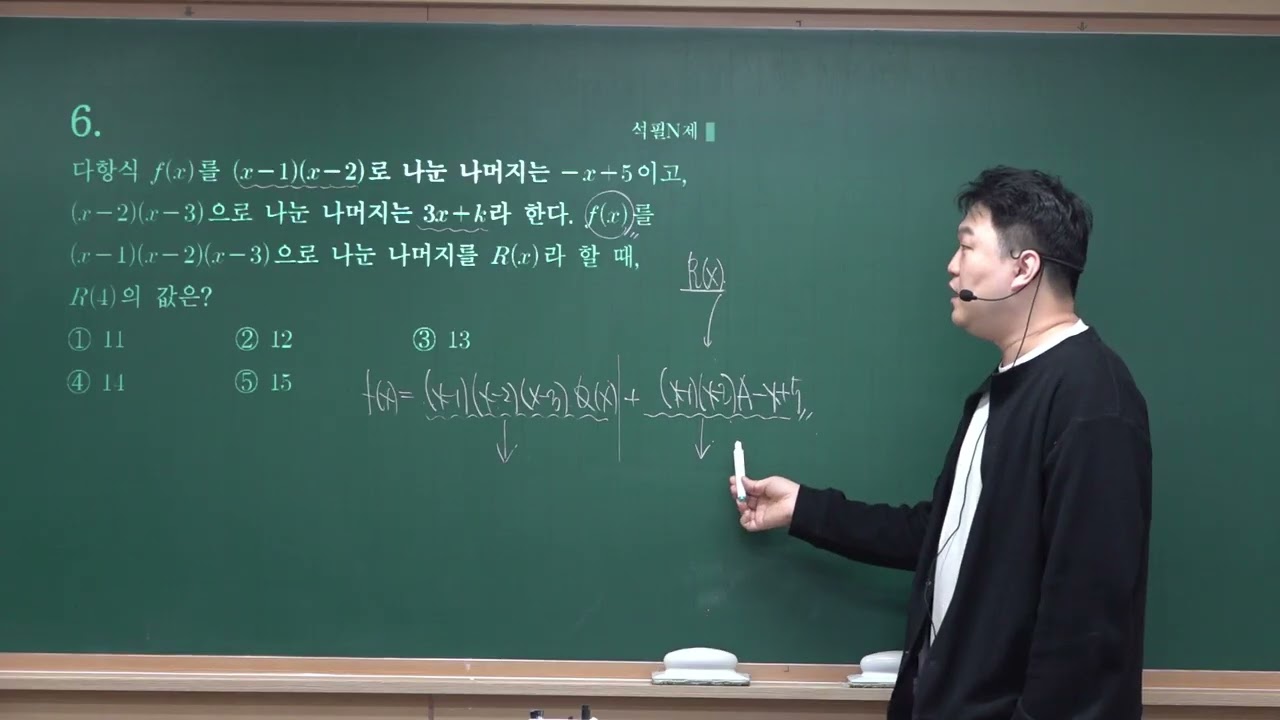 6.
석필N제
다항식 f(x)를 (x−1)(x−2)로 나눈 나머지는 −x+5이고,
(x−2)(x−3)으로 나눈 나머지는 3x+k라 한다. f(x)를
(x−1)(x−2)(x−3)으로 나눈 나머지를 R(x)라 할 때,
R(4)의 값은?
① 11 ② 12 ③ 13
④ 14 ⑤ 15
R(x)
f(x)=(x-1)(x-2)(x-3)Q(x)+(x-1)(x-2)A-x+5